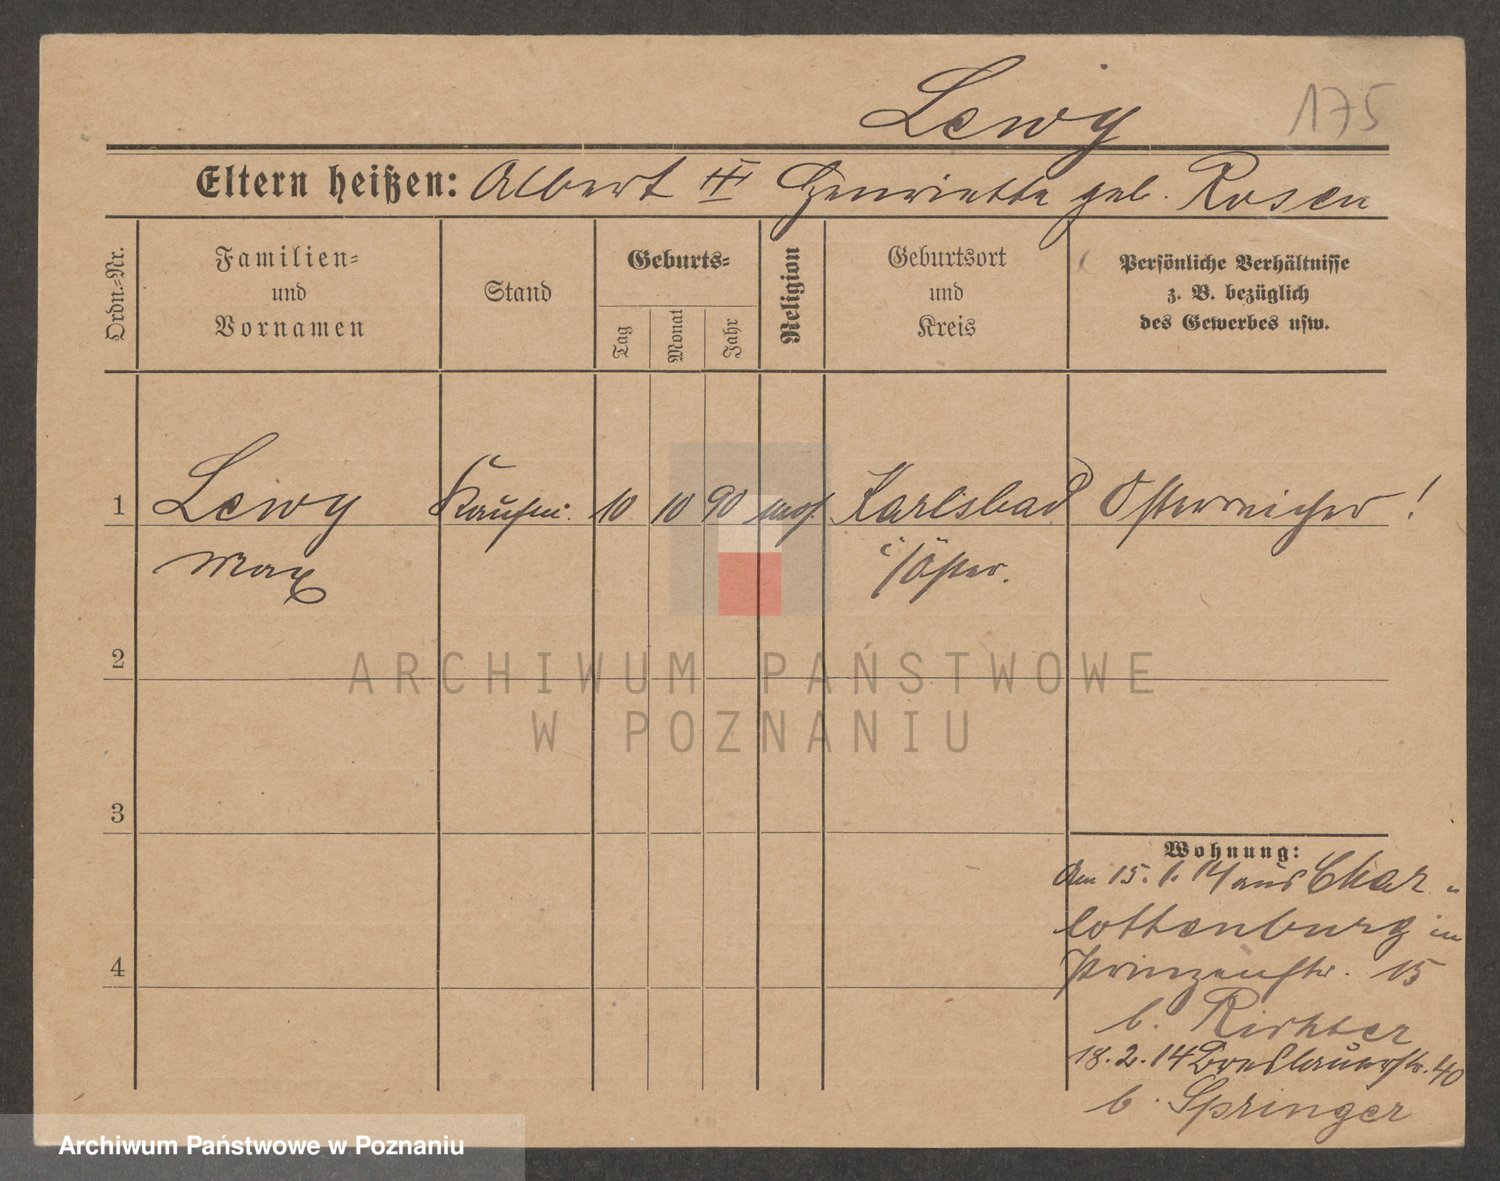 Lewy 175
Eltern heißen: Albert III Henriette geb. Rosen
Ordn.-Nr.
Familien-
und
Vornamen
Stand
Geburts-
Tag
Monat
Jahr
Religion
Geburtsort
und
Kreis
Persönliche Verhältnisse
z. B. bezüglich
des Gewerbes usw.
1 Lewy Kaufm. 10 10 90 mos. Karlsbad Österreicher!
Max i/Öster.
2
ARCHIWUM PAŃSTWOWE
W POZNANIU
3
Wohnung:
Am 15. 1. 14 aus Char-
lottenburg in
4 Prinzenstr. 15
b. Richter
18. 2. 14 Breslauerstr. 40
b. Springer
Archiwum Państwowe w Poznaniu